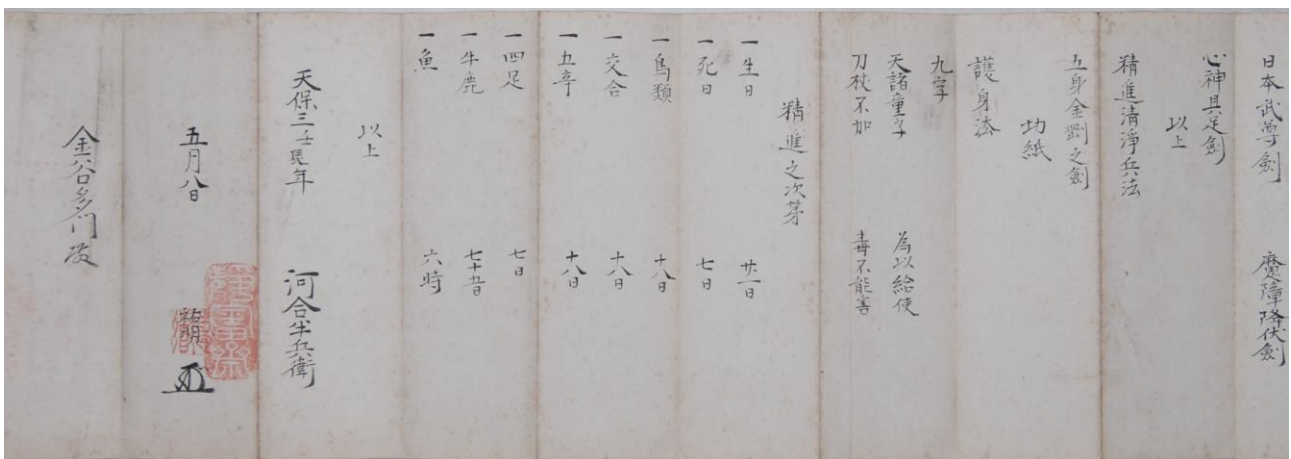 日本武尊劍　魔障降伏劍
心神具足劍
以上
精進清淨兵法
五身金剛之劍
切紙
護身法
九字
天諸童子　為以給使
刀杖不加　毒不能害
精進之次第
一生日　廿一日
一死日　七日
一鳥類　十八日
一交合　十八日
一五辛　十八日
一四足　七日
一牛鹿　七十五日
一魚　六時
以上
天保三壬辰年　河合半兵衛
五月八日　祐明
金谷多門殿